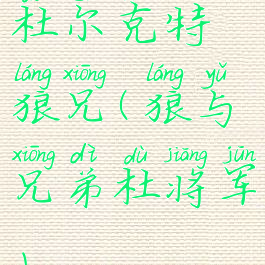 杜尔克特
láng xiōng láng yǔ
狼兄(狼与
xiōng dì dù jiāng jūn
兄弟杜将军
)